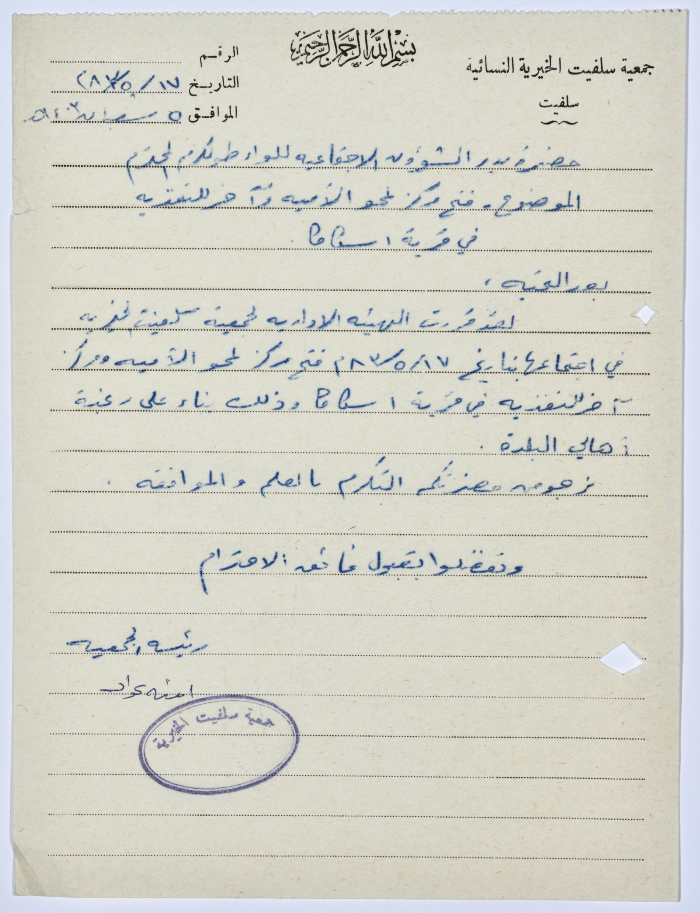 بسم الله الرحمن الرحيم
جمعية سلفيت الخيرية النسائية
سلفيت
الرقم
التاريخ ١٧/٥/٨٣
الموافق ٥ شعبان ١٤٠٣هـ
حضرة مدير الشؤون الاجتماعيه للواء طولكرم المحترم
الموضوع، فتح مركز لمحو الأميه وآخر للتغذيه
في قرية اسكاكا.
بعد التحيه،
لقد قررت الهيئه الاداريه لجمعية سلفيت الخيريه
في اجتماعها بتاريخ ١٧/٥/٨٣م فتح مركز لمحو الأميه ومركز
آخر للتغذيه في قرية اسكاكا وذلك بناء على رغبة
أهالي البلدة.
نرجو من حضرتكم التكرم بالعلم والموافقه.
وتفضلوا بقبول فائق الاحترام
رئيسه الجمعيه
جمعية سلفيت الخيرية